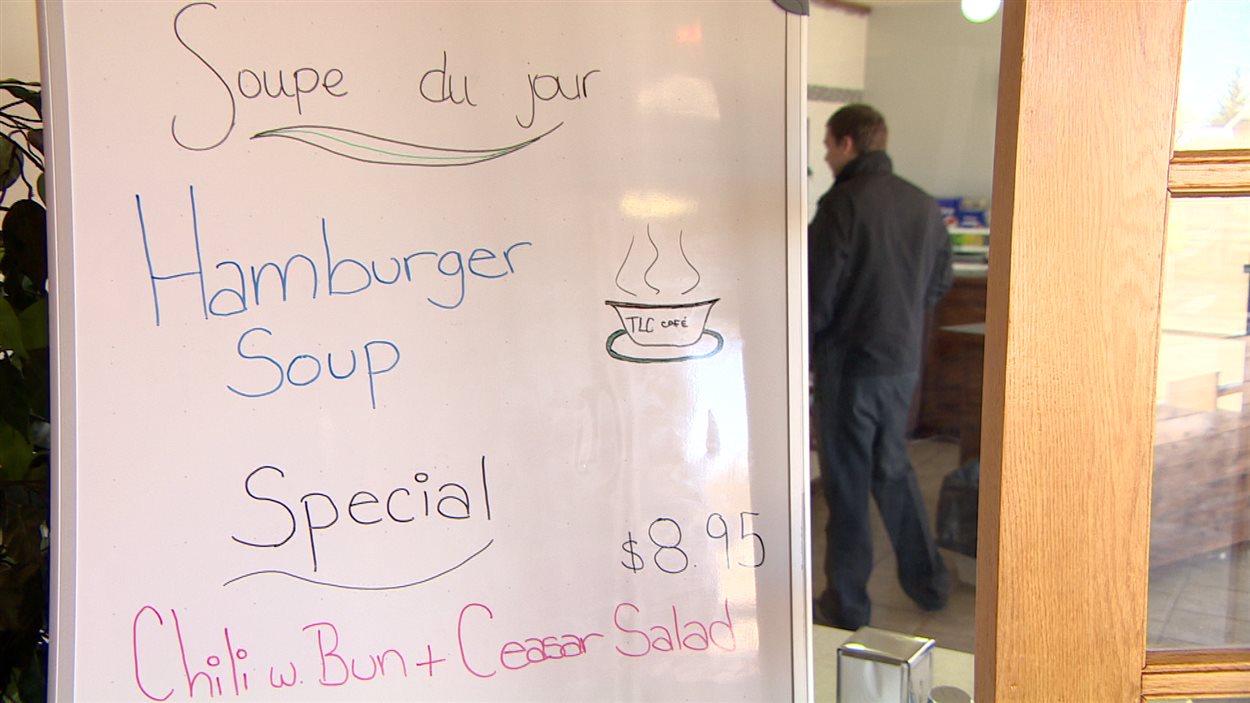 Soupe du jour
Hamburger
Soup
TLC CAFÉ
Special
$8.95
Chili w. Bun + Ceasar Salad